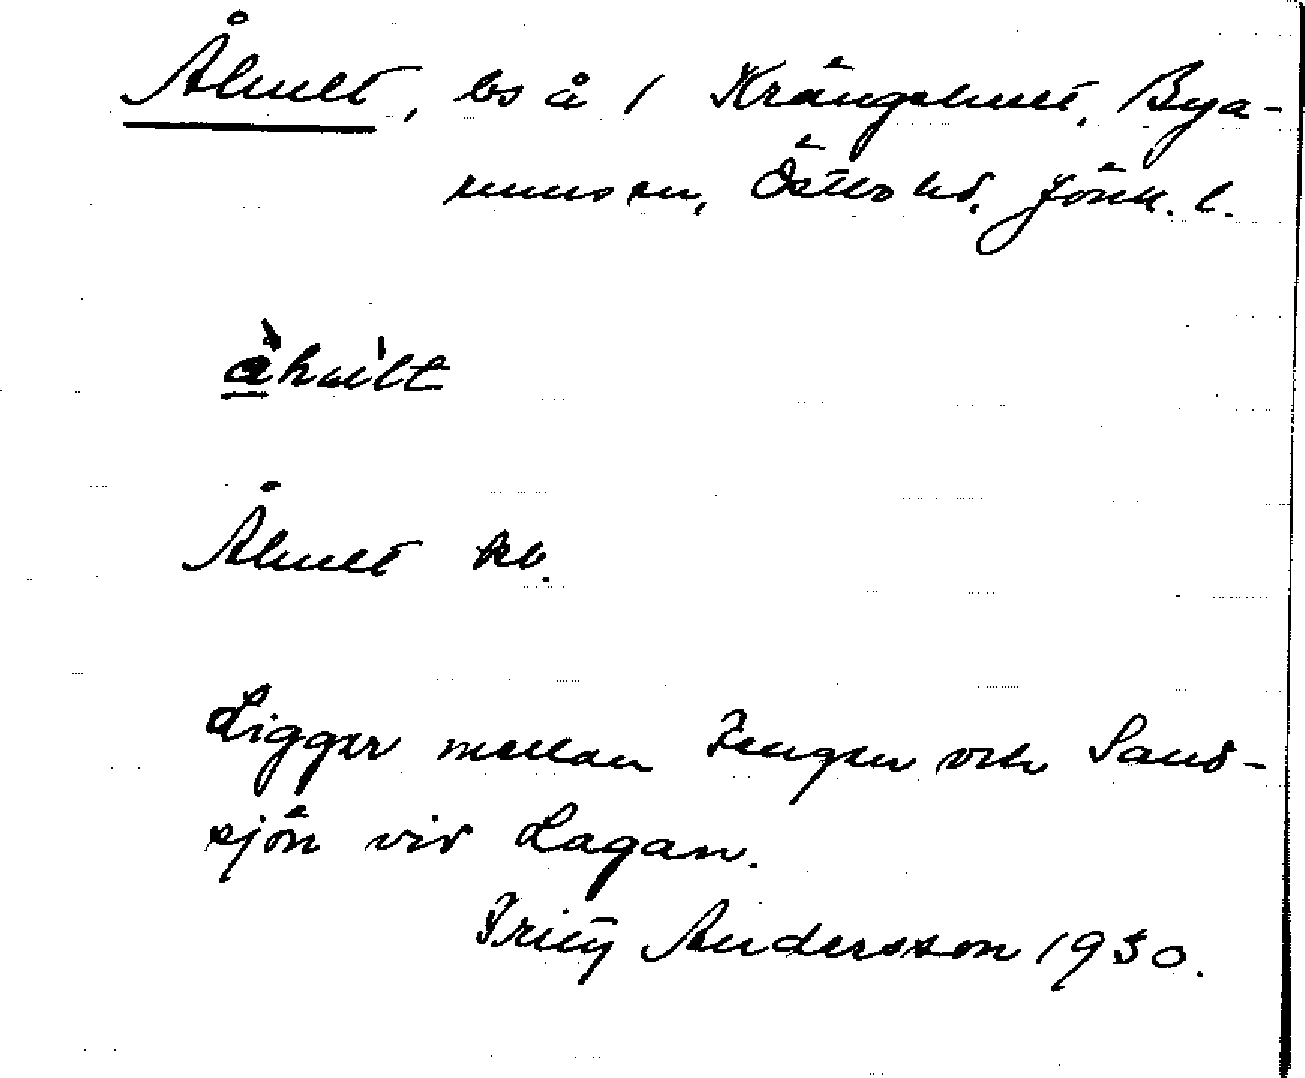 Åhult, bs å 1 Krängshult, Bya-
rums sn, Östbo hd, Jönk. l.
åhult
Åhult kb.
Ligger mellan Fängen och Sand-
sjön vid Lagan.
Fritz Andersson 1930.